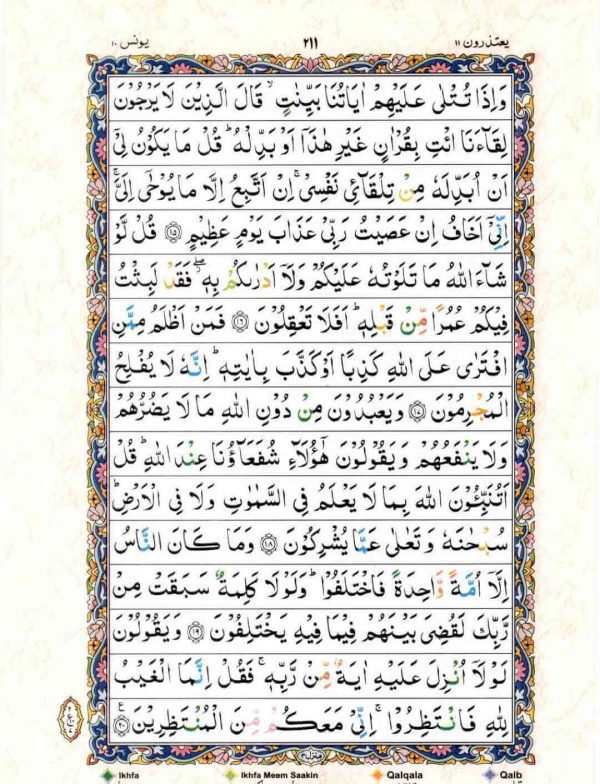 یعتذرون ۱۱ ۲۱۱ یونس ۱۰
وَاِذَا تُتْلٰى عَلَيْهِمْ اٰيَاتُنَا بَيِّنٰتٍ ۙ قَالَ الَّذِيْنَ لَا يَرْجُوْنَ
لِقَآءَنَا ائْتِ بِقُرْاٰنٍ غَيْرِ هٰذَآ اَوْ بَدِّلْهُ ؕ قُلْ مَا يَكُوْنُ لِىْٓ
اَنْ اُبَدِّلَهٗ مِنْ تِلْقَآئِ نَفْسِىْ ۚ اِنْ اَتَّبِعُ اِلَّا مَا يُوْحٰٓى اِلَىَّ ۚ
اِنِّىْٓ اَخَافُ اِنْ عَصَيْتُ رَبِّىْ عَذَابَ يَوْمٍ عَظِيْمٍ ﴿۱۵﴾ قُلْ لَّوْ
شَآءَ اللّٰهُ مَا تَلَوْتُهٗ عَلَيْكُمْ وَلَآ اَدْرٰىكُمْ بِهٖ ۖ فَقَدْ لَبِثْتُ
فِيْكُمْ عُمُرًا مِّنْ قَبْلِهٖ ؕ اَفَلَا تَعْقِلُوْنَ ﴿۱۶﴾ فَمَنْ اَظْلَمُ مِمَّنِ
افْتَرٰى عَلَى اللّٰهِ كَذِبًا اَوْ كَذَّبَ بِاٰيٰتِهٖ ؕ اِنَّهٗ لَا يُفْلِحُ
الْمُجْرِمُوْنَ ﴿۱۷﴾ وَيَعْبُدُوْنَ مِنْ دُوْنِ اللّٰهِ مَا لَا يَضُرُّهُمْ
وَلَا يَنْفَعُهُمْ وَيَقُوْلُوْنَ هٰٓؤُلَآءِ شُفَعَآؤُنَا عِنْدَ اللّٰهِ ؕ قُلْ
اَتُنَبِّـُٔوْنَ اللّٰهَ بِمَا لَا يَعْلَمُ فِى السَّمٰوٰتِ وَلَا فِى الْاَرْضِ ؕ
سُبْحٰنَهٗ وَتَعٰلٰى عَمَّا يُشْرِكُوْنَ ﴿۱۸﴾ وَمَا كَانَ النَّاسُ
اِلَّآ اُمَّةً وَّاحِدَةً فَاخْتَلَفُوْا ؕ وَلَوْلَا كَلِمَةٌ سَبَقَتْ مِنْ
رَّبِّكَ لَقُضِىَ بَيْنَهُمْ فِيْمَا فِيْهِ يَخْتَلِفُوْنَ ﴿۱۹﴾ وَيَقُوْلُوْنَ
لَوْلَآ اُنْزِلَ عَلَيْهِ اٰيَةٌ مِّنْ رَّبِّهٖ ۚ فَقُلْ اِنَّمَا الْغَيْبُ
لِلّٰهِ فَانْتَظِرُوْا ۚ اِنِّىْ مَعَكُمْ مِّنَ الْمُنْتَظِرِيْنَ ﴿۲۰﴾
منزل ۳
Ikhfa Ikhfa Meem Saakin Qalqala Qalb